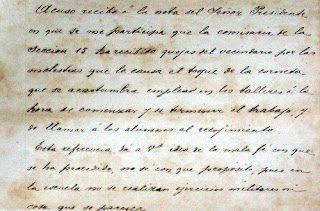 Acuso recibo á la nota del Señor Presidente
en que se me participa que la comisaría de la
Sección 15 ha recibido quejas del vecindario por las
molestias que le causa el toque de la corneta
que se acostumbra emplear en los talleres á la
hora de comenzar y de terminar el trabajo, y
de llamar á los alumnos al recogimiento.
Esta referencia dá a Vd. idea de la mala fé con que
se ha procedido, no se con que proposito, pues en
la escuela no se realizan ejercicios militares ni
cosa que se paresca